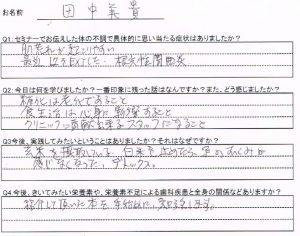 お名前 田中義貴
Q1:セミナーでお伝えした体の不調で具体的に思い当たる症状はありましたか?
肌荒れが起こりやすい
Q2:今日は何を学びましたか?一番印象に残った話はなんですか?また、どう感じましたか?
糖化は老化であること
食生活は心身に影響すること
クリニックに貢献出来るスタッフになること
Q3今後、実践してみたいということはありましたか?それはなぜですか?
玄米を摂取している。白米を止めたら、足のむくみが
感じなくなった。デトックス。
Q4.今後、きいてみたい栄養素や、栄養素不足による歯科疾患と全身の関係などありますか?
紹介して頂いた本を